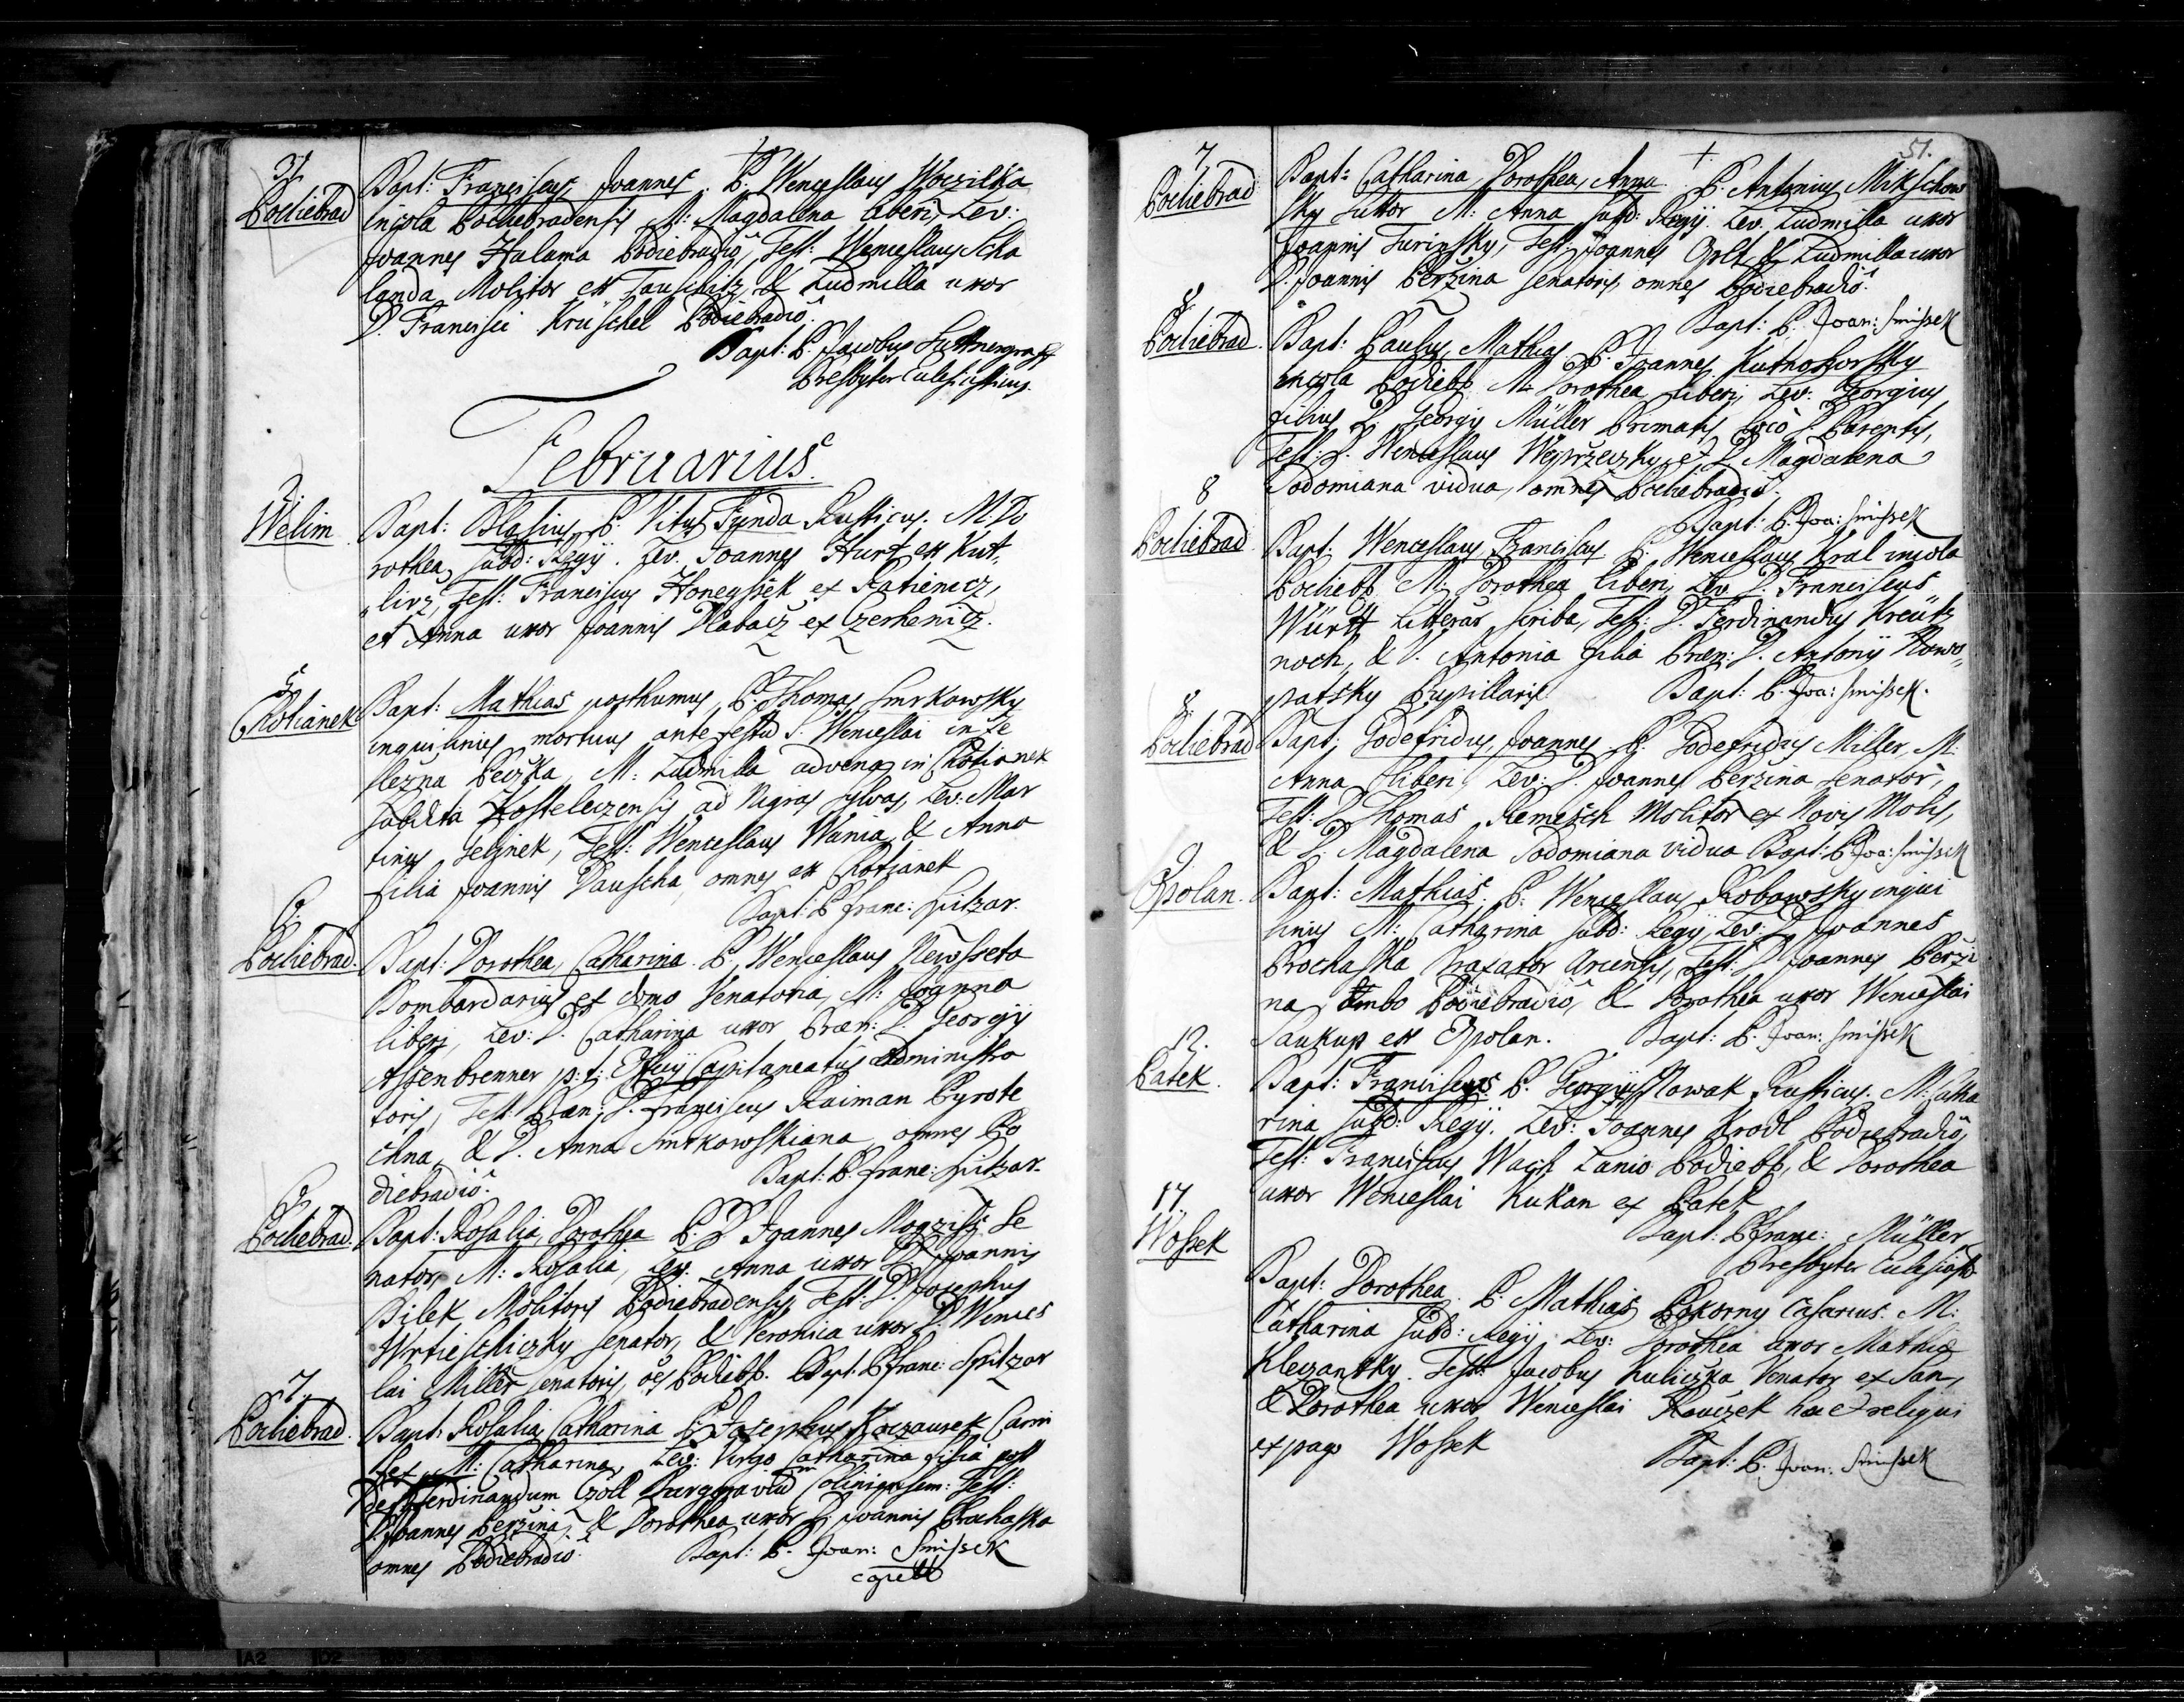 31.
Podiebrad
Bapt: Franciscus, Joannes. P. Wenceslaus Woczilka
incola Podiebradensis M: Magdalena liberi, Lev:
Joannes Halama Podiebradio, Test: Wenceslaus Scha
landa Molitor ex Tauschitz, & Ludmilla uxor
D. Francisci Krüschel Podiebradio.
Bapt: P. Jacobus
Presbyter Eclesiasticus.
Februarius.
3.
Welim
Bapt: Blasius, P. Vitus Funda Rusticus. M. Do
rothea, subd: Regij. Lev. Joannes Hurt ex Kut,
lirz, Test: Franciscus Honeyssek ex Ratienicz,
et Anna uxor Joannis Hlabacz ex Czerhenicz.
5.
Chotianek
Bapt: Mathias posthumus, P. Thomas Smrkowsky
inquilinus mortuus ante festu S. Wenceslai in Ze
lezna Peczka, M: Ludmilla advena in Chotianek
subdita Kosteleczensis ad Nigras sylvas, Lev: Mar
tinus Jelinek, Test: Wenceslaus Wania, & Anna
filia Joannis Dauscha, omnes ex Chotianek
Bapt: P. Franc: Spitzar.
6.
Podiebrad.
Bapt: Dorothea, Catharina. P. Wenceslaus Newsseta
Bombardarius ex domo Venatoria, M: Joanna
liberi, Lev: D. Catharina uxor Præn: D. Georgij
Assenbrenner p: t: Officij Capitaneatus administra
toris, Test: Præn: D. Franciscus Raiman Pyrote
chna, & D. Anna Smrkowskiana, omnes Po
diebradio.
Bapt: P. Franc: Spitzar.
6.
Podiebrad.
Bapt: Rosalia, Dorothea P. D. Joannes Se
nator, M: Rosalia, Lev. Anna uxor D. Joannis
Bilek Molitoris Podiebradensis, Test: D. Josephus
Wrtieschiczky Senator, & Veronica uxor D. Wences
lai Miller Senatoris, oes Podiebb. Bapt: P. Franc: Spitzar
7.
Podiebrad.
Bapt: Rosalia, Catharina P. Josephus Korzaurek Carni
fex, M: Catharina, Lev: Virgo Catharina filia post
def: Ferdinandum Czoll Purgraviu Coliniensem: Test:
D. Joannes Perzina, & Dorothea uxor D. Joannis Prochaska
omnes Podiebradio.
Bapt: P. Joan: Smissek
51.
7.
Podiebrad
Bapt: Catharina, Dorothea, Anna. P. Antonius Mikschow
sky Sutor M: Anna subd: Regij. Lev. Ludmilla uxor
Joannis Turinsky, Test: Joannes & Ludmilla uxor
D. Joannis Perzina Senatoris, omnes Podiebradio.
Bapt: P. Joan: Smissek
8.
Podiebrad.
Bapt: Paulus, Mathias P. Joannes Kutnohorsky
incola Podiebb. M: Dorothea liberi, Lev: Georgius
filius D. Georgij Müller Primatis, loco D. Parentis,
Test: D. Wenceslaus et D. Magdalena
Sodomiana vidua, omnes Podiebradio.
Bapt: P. Joa: Smissek
8
Podiebrad
Bapt: Wenceslaus Franciscus P. Wenceslaus Kral incola
Podiebb. M: Dorothea liberi, Lev. D. Franciscus
Württ Litterar. scriba, Test: D. Ferdinandus Kreütz
noch, & D. Antonia filia Præn: D. Antonij Nowo,,
patsky Pupillaris.
Bapt: P. Joa: Smissek.
8.
Podiebrad
Bapt: Godefridus, Joannes P. Godefridus Miller, M:
Anna liberi, Lev: D. Joannes Perzina Senator,
Test: D. Thomas Remesch Molitor ex Novis Molis,
& D. Magdalena Sodomiana vidua Bapt: P. Joa: Smissek
9.
Opolan.
Bapt: Mathias. P. Wenceslaus Robowsky inqui
linus M: Catharina subd: Regij, Lev: D. Joannes
Prochaska Braxator Arcensis, Test: D. Joannes Perzi
na, ambo Podiebradio, & Dorothea uxor Wenceslai
Saukup ex Opolan.
Bapt: P. Joan: Smissek
12.
Patek.
Bapt: Franciscus P. Georgius Nowak Rusticus. M: Catha
rina subd: Regij. Lev: Joannes Krodl Podiebradio,
Test: Franciscus Lanio Podiebb, & Dorothea
uxor Wenceslai Kukan ex Patek
Bapt: P. Franc: Müller
Presbyter Eclesiast.
17.
Wossek
Bapt: Dorothea. P. Mathias Pokorny Casarius. M:
Catharina subd: Regij Lev: Dorothea uxor Mathiæ
Kleczansky. Test: Jacobus Kuliczka Venator ex San,
& Dorothea uxor Wenceslai hæc & reliqui
ex pago Wossek
Bapt: P. Joan: Smissek